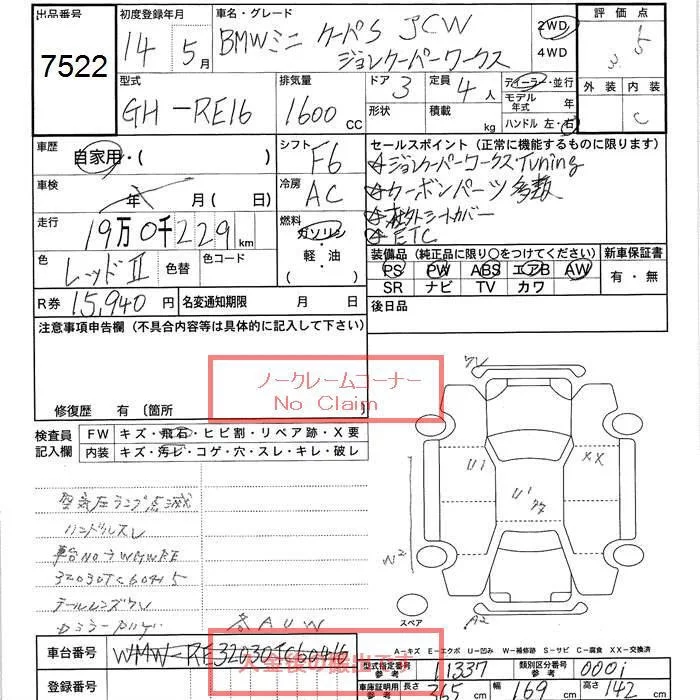 出品番号 初度登録年月 車名・グレード 評価点
7522 14年 5月 BMWミニ クーパS JCW 2WD・
ジョンクーパーワークス 4WD
型式 排気量 ドア 定員 ディーラー・並行 外装 内装
GH-RE16 1600cc 3 4人 モデル年式 年 C
形状 積載 kg ハンドル 左・右
車歴 シフト セールスポイント(正常に機能するものに限ります)
自家用・( ) F6 ジョンクーパーワークスTuning
車検 冷房 カーボンパーツ多数
年 月(日) AC シートカバー
走行 燃料 ETC
19万0千229km ガソリン・ 装備品(純正品に限り○をつけてください) 新車保証書
色 色替 色コード 軽・油 PS PW ABS エアB AW 有・無
レッドII ( ) SR ナビ TV カワ
R券 15,940円 名変通知期限 月 日 後日品
注意事項申告欄(不具合内容等は具体的に記入して下さい)
ノークレームコーナー
No Claim
修復歴 有〔箇所 〕
検査員 FW キズ・飛石・ヒビ割・リペア跡・X要
記入欄 内装 キズ・汚レ・コゲ・穴・スレ・キレ・破レ
U1 XX
U1
W2
空気圧ランプ点滅
ハンドルスレ
車台NO→WMWRE
32030TC60415
スペア A2
A-キズ E-エクボ U-凹み W-補修跡 S-サビ C-腐食 XX-交換済
車台番号 WMW-RE32030TC60416
入金後の搬出です
型式指定番号 参考 11337 類別区分番号 参考 0001
登録番号 車庫証明用 参考 長さ 365cm 幅 169cm 高さ 142cm